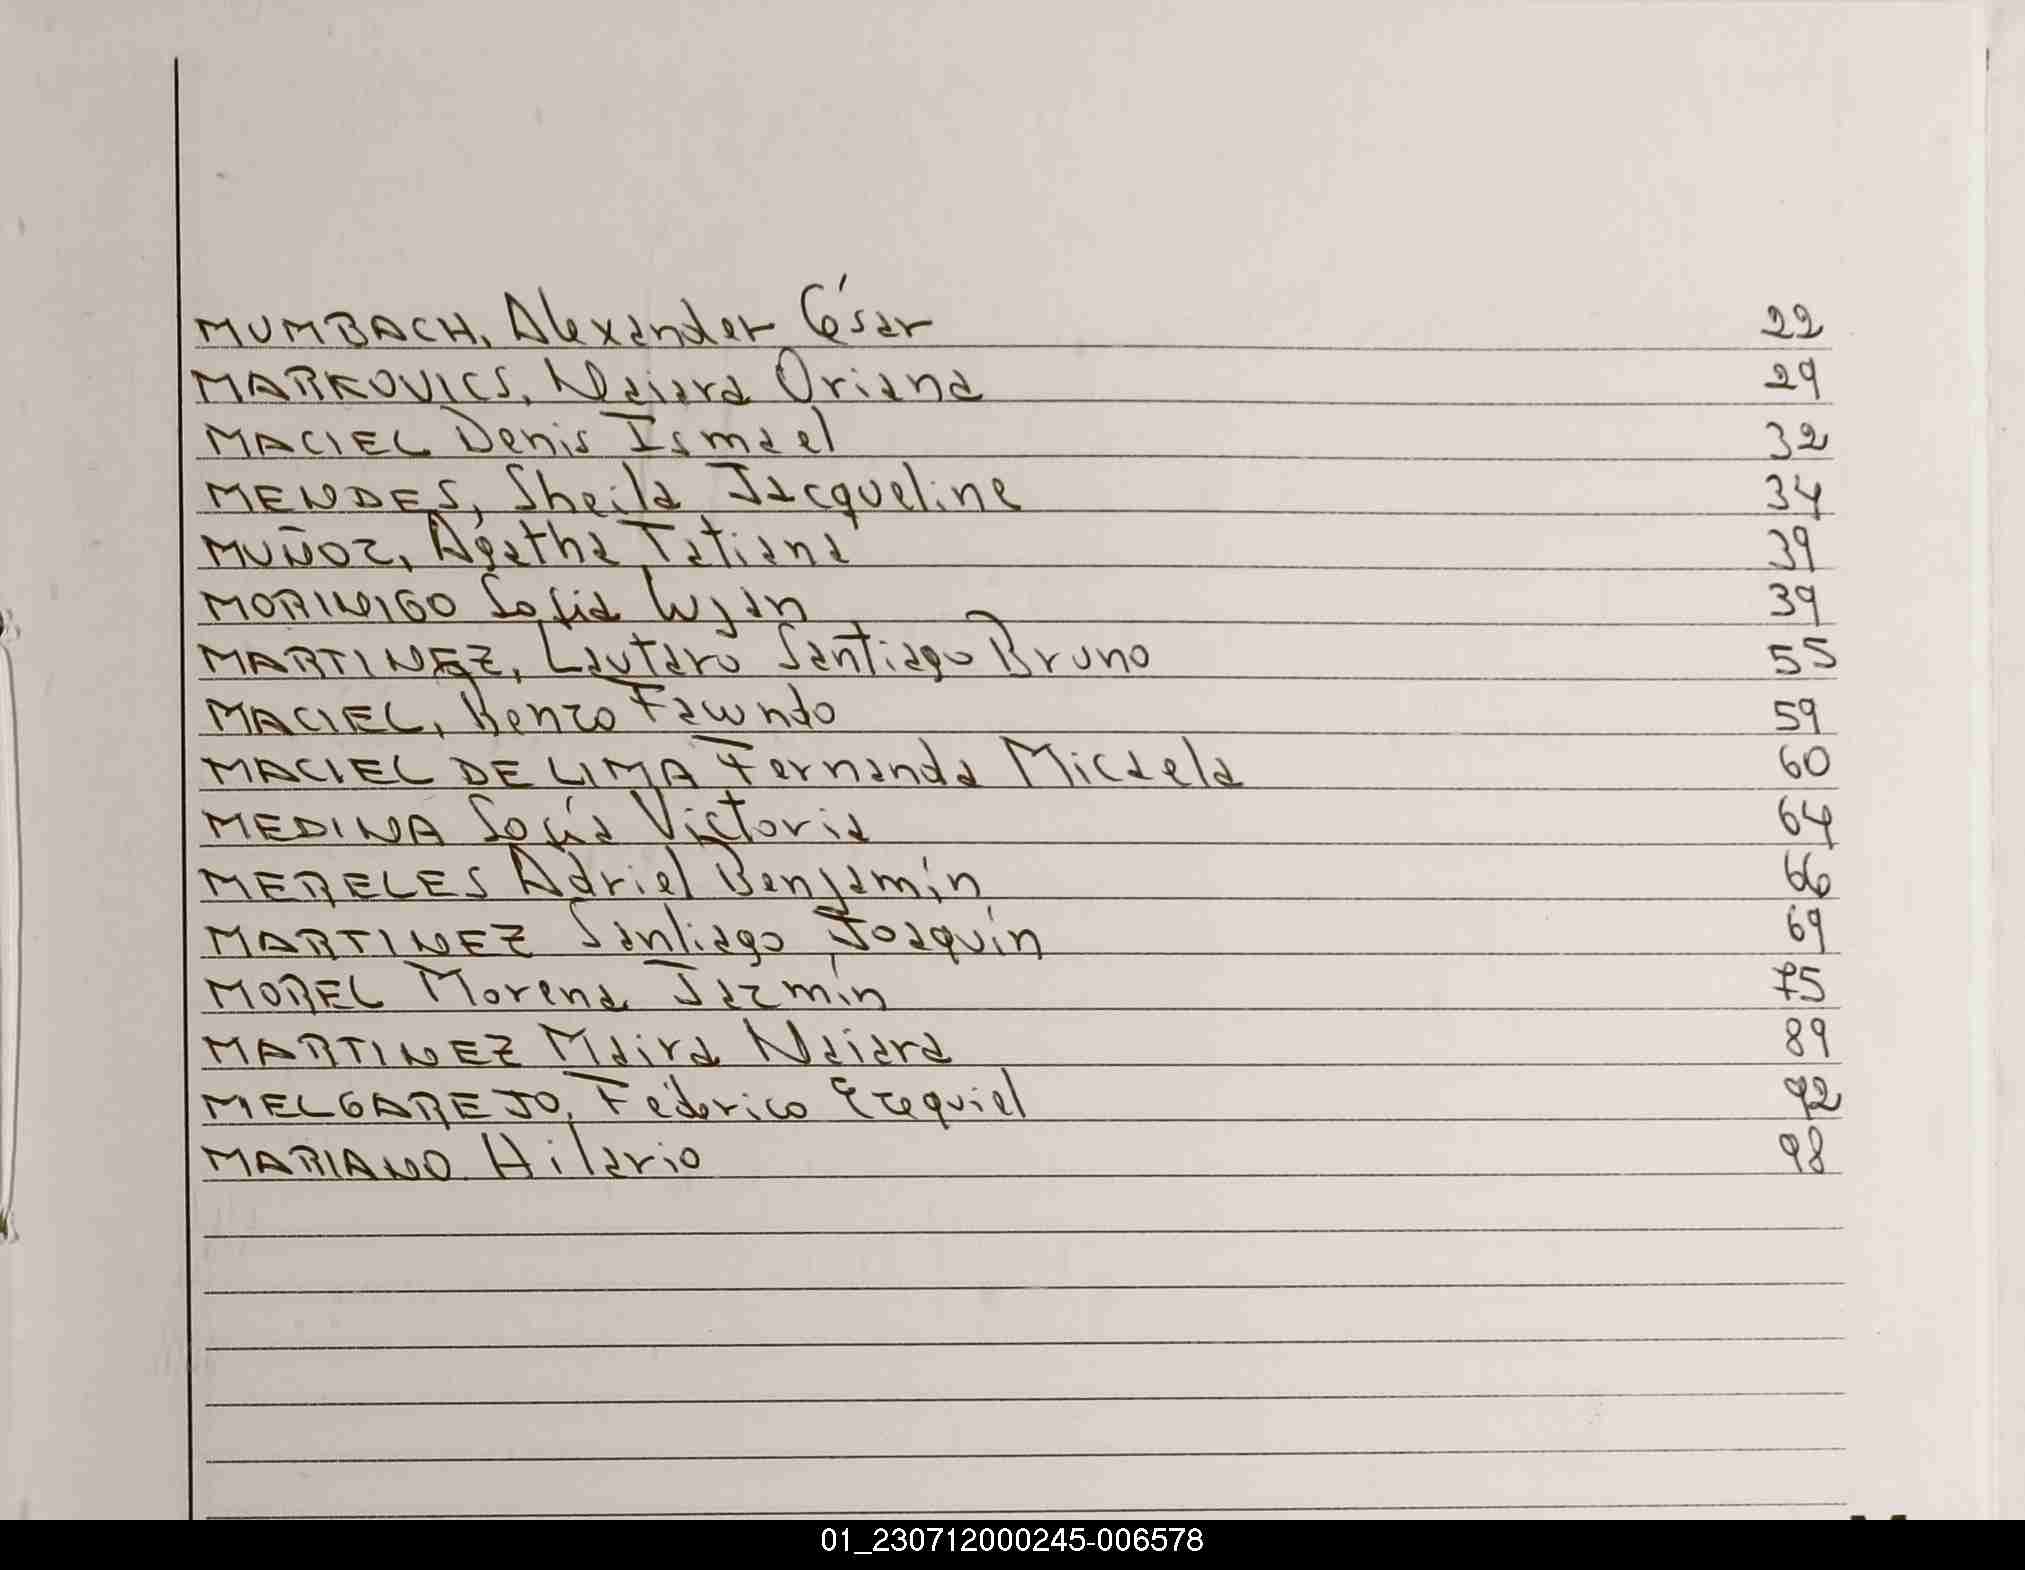 MUMBACH, Alexander César 22
MARKOVICS, Naiara Oriana 29
MACIEL Denis Ismael 32
MENDES, Sheila Jacqueline 34
MUÑOZ, Agatha Tatiana 39
MORINIGO Sofia Lujan 39
MARTINEZ, Lautaro Santiago Bruno 55
MACIEL, Renzo Facundo 59
MACIEL DE LIMA Fernanda Micaela 60
MEDINA Sofía Victoria 64
MERELES Adriel Benjamín 66
MARTINEZ Santiago Joaquín 69
MOREL Morena Jazmín 75
MARTINEZ Maira Naiara 89
MELGAREJO, Féderico Ezequiel 92
MARIANO Hilario 98
01_230712000245-006578